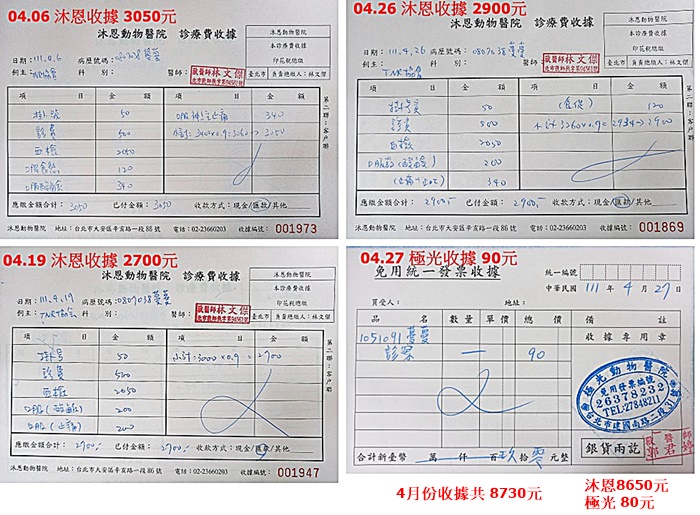 04.06 沐恩收據 3050元
沐恩動物醫院 診療費收據
沐恩動物醫院
本診療費收據
印花稅總繳
日期:111.4.6 病歷號碼:
飼主:TNR協會 科 別: 醫師:
獸醫師 林文傑
臺北市 負責總繳人:林文傑
項 目 金 額 項 目 金 額
掛號 50 340
診費 500
血檢 2050
120
340
第二聯:客戶聯
應繳金額合計:3050 已付金額:3050 收款方式:現金/匯款/其他
沐恩動物醫院 地址:台北市大安區辛亥路一段86號 電話:02-23660203 收據編號:001973
04.26 沐恩收據 2900元
沐恩動物醫院 診療費收據
沐恩動物醫院
本診療費收據
印花稅總繳
日期:111.4.26 病歷號碼:0807038蔓蔓
飼主:TNR協會 科 別: 醫師:
獸醫師 林文傑
臺北市 負責總繳人:林文傑
項 目 金 額 項 目 金 額
掛號 50 120
診費 500 小計3260×0.9=2934→2900
血檢 2050
200
340
第二聯:客戶聯
應繳金額合計:2900.- 已付金額:2900.- 收款方式:現金/匯款/其他
沐恩動物醫院 地址:台北市大安區辛亥路一段86號 電話:02-23660203 收據編號:001869
04.19 沐恩收據 2700元
沐恩動物醫院 診療費收據
沐恩動物醫院
本診療費收據
印花稅總繳
日期:111.4.19 病歷號碼:0807038蔓蔓
飼主:TNR協會 科 別: 醫師:
獸醫師 林文傑
臺北市 負責總繳人:林文傑
項 目 金 額 項 目 金 額
掛号 50 小計:3000×0.9=2700
診費 500
血檢 2050
200
200
第二聯:客戶聯
應繳金額合計:2700.- 已付金額:2700.- 收款方式:現金/匯款/其他
沐恩動物醫院 地址:台北市大安區辛亥路一段86號 電話:02-23660203 收據編號:001947
04.27 極光收據 90元
免用統一發票收據
統一編號
中華民國 111年4月27日
買受人: 地址:
品 名 數量 單價 總 價 備 註
1051091蔓蔓
收據專用章
診察 一 90
極光動物醫院
免用發票編號
26378232
TEL:27848211
台北市建國南路二段31號
銀貨兩訖
合計新臺幣 萬 仟 百玖拾零元整
4月份收據共 8730元
沐恩8650元
極光 80元